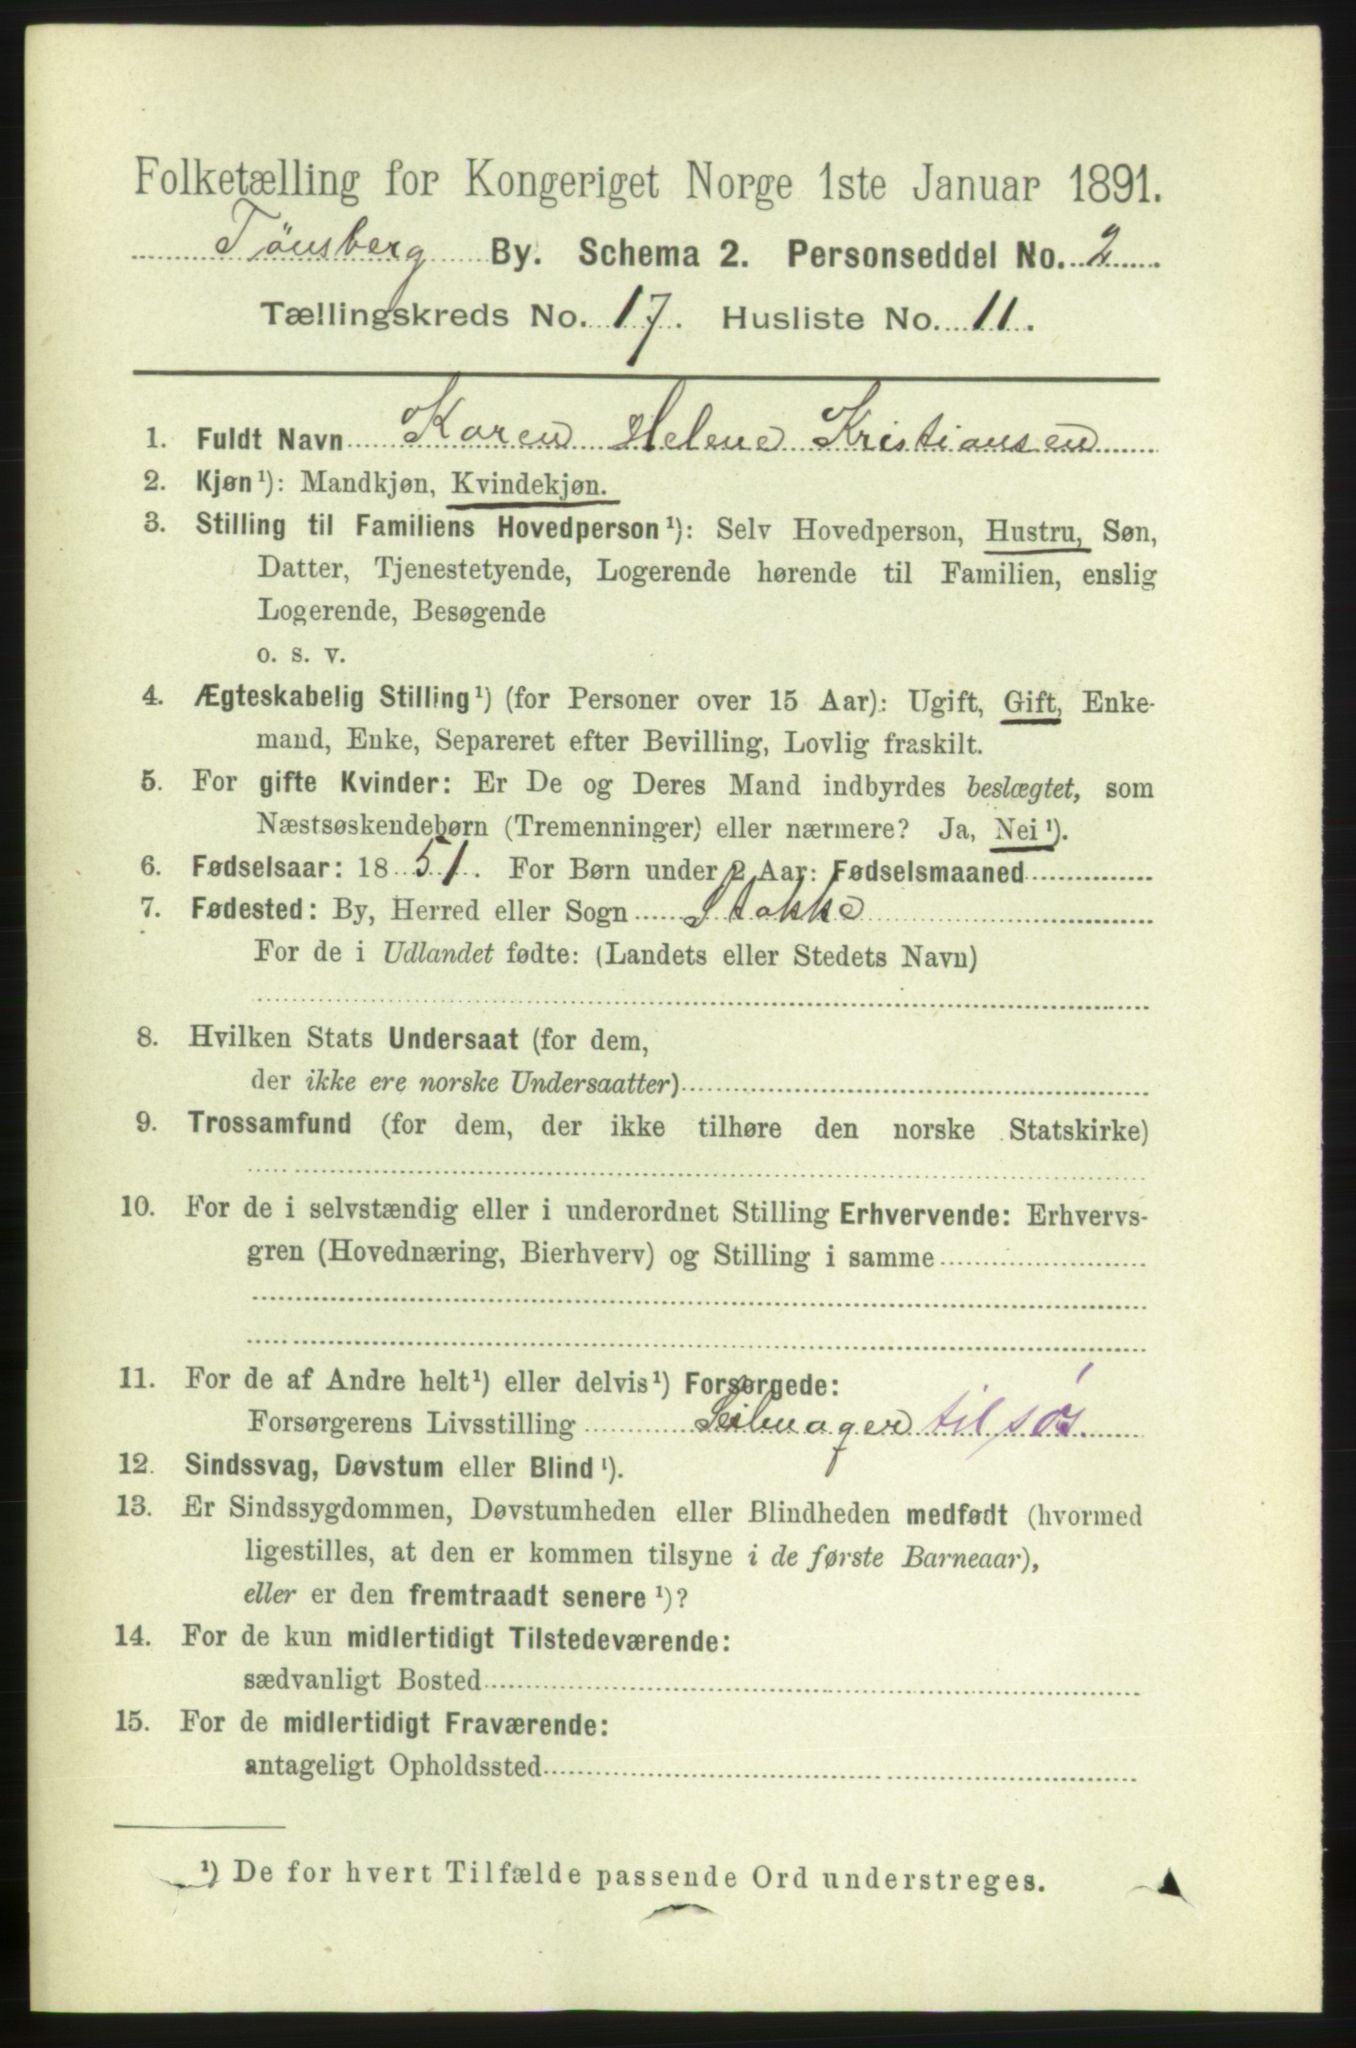 Folketælling for Kongeriget Norge 1ste Januar 1891.
Tønsberg By. Schema 2. Personseddel No. 2
Tællingskreds No. 17. Husliste No. 11.
1. Fuldt Navn Karen Helene Kristiansen
2. Kjøn¹): Mandkjøn, Kvindekjøn.
3. Stilling til Familiens Hovedperson¹): Selv Hovedperson, Hustru, Søn,
Datter, Tjenestetyende, Logerende hørende til Familien, enslig
Logerende, Besøgende
o. s. v.
4. Ægteskabelig Stilling¹) (for Personer over 15 Aar): Ugift, Gift, Enke-
mand, Enke, Separeret efter Bevilling, Lovlig fraskilt.
5. For gifte Kvinder: Er De og Deres Mand indbyrdes beslægtet, som
Næstsøskendebørn (Tremenninger) eller nærmere? Ja, Nei¹).
6. Fødselsaar: 1851. For Børn under 2 Aar: Fødselsmaaned
7. Fødested: By, Herred eller Sogn Stokke
For de i Udlandet fødte: (Landets eller Stedets Navn)
8. Hvilken Stats Undersaat (for dem,
der ikke ere norske Undersaatter)
9. Trossamfund (for dem, der ikke tilhøre den norske Statskirke)
10. For de i selvstændig eller i underordnet Stilling Erhvervende: Erhvervs-
gren (Hovednæring, Bierhverv) og Stilling i samme
11. For de af Andre helt¹) eller delvis¹) Forsørgede:
Forsørgerens Livsstilling Seilmager til søs
12. Sindssvag, Døvstum eller Blind¹).
13. Er Sindssygdommen, Døvstumheden eller Blindheden medfødt (hvormed
ligestilles, at den er kommen tilsyne i de første Barneaar),
eller er den fremtraadt senere¹)?
14. For de kun midlertidigt Tilstedeværende:
sædvanligt Bosted
15. For de midlertidigt Fraværende:
antageligt Opholdssted
¹) De for hvert Tilfælde passende Ord understreges.